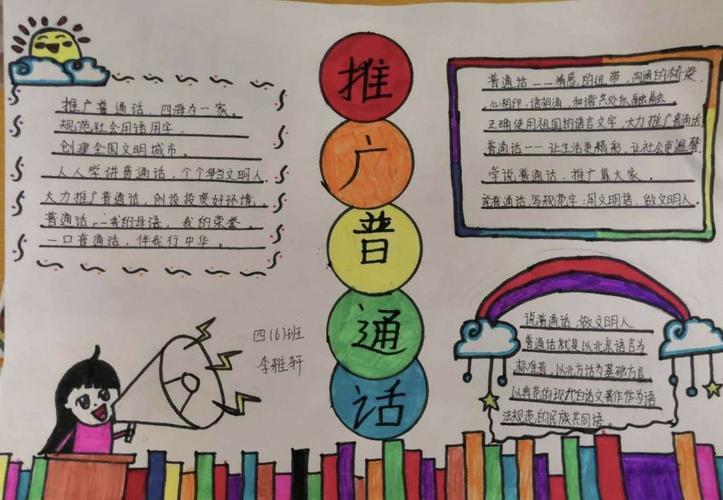 推广普通话
推广普通话，四海为一家。
规范社会用语用字。
创建全国文明城市。
人人学讲普通话，个个争当文明人
大力推广普通话，创设投资好环境。
普通话——我的母语，我的荣誉。
一口普通话，伴我行中华。
四(6)班
李雅轩
普通话——情感的纽带，沟通的桥梁
心相印，语相通，和谐共处乐融融
正确使用祖国的语言文字，大力推广普通话
普通话——让生活更精彩，让社会更温馨
学说普通话，推广靠大家。
普通话，写规范字：用文明语，做文明人。
说普通话，做文明人
普通话就是以北京语言为
标准音，以北方话为基础方言
以典范的现代白话文著作作为语
法规范的民族共同语。